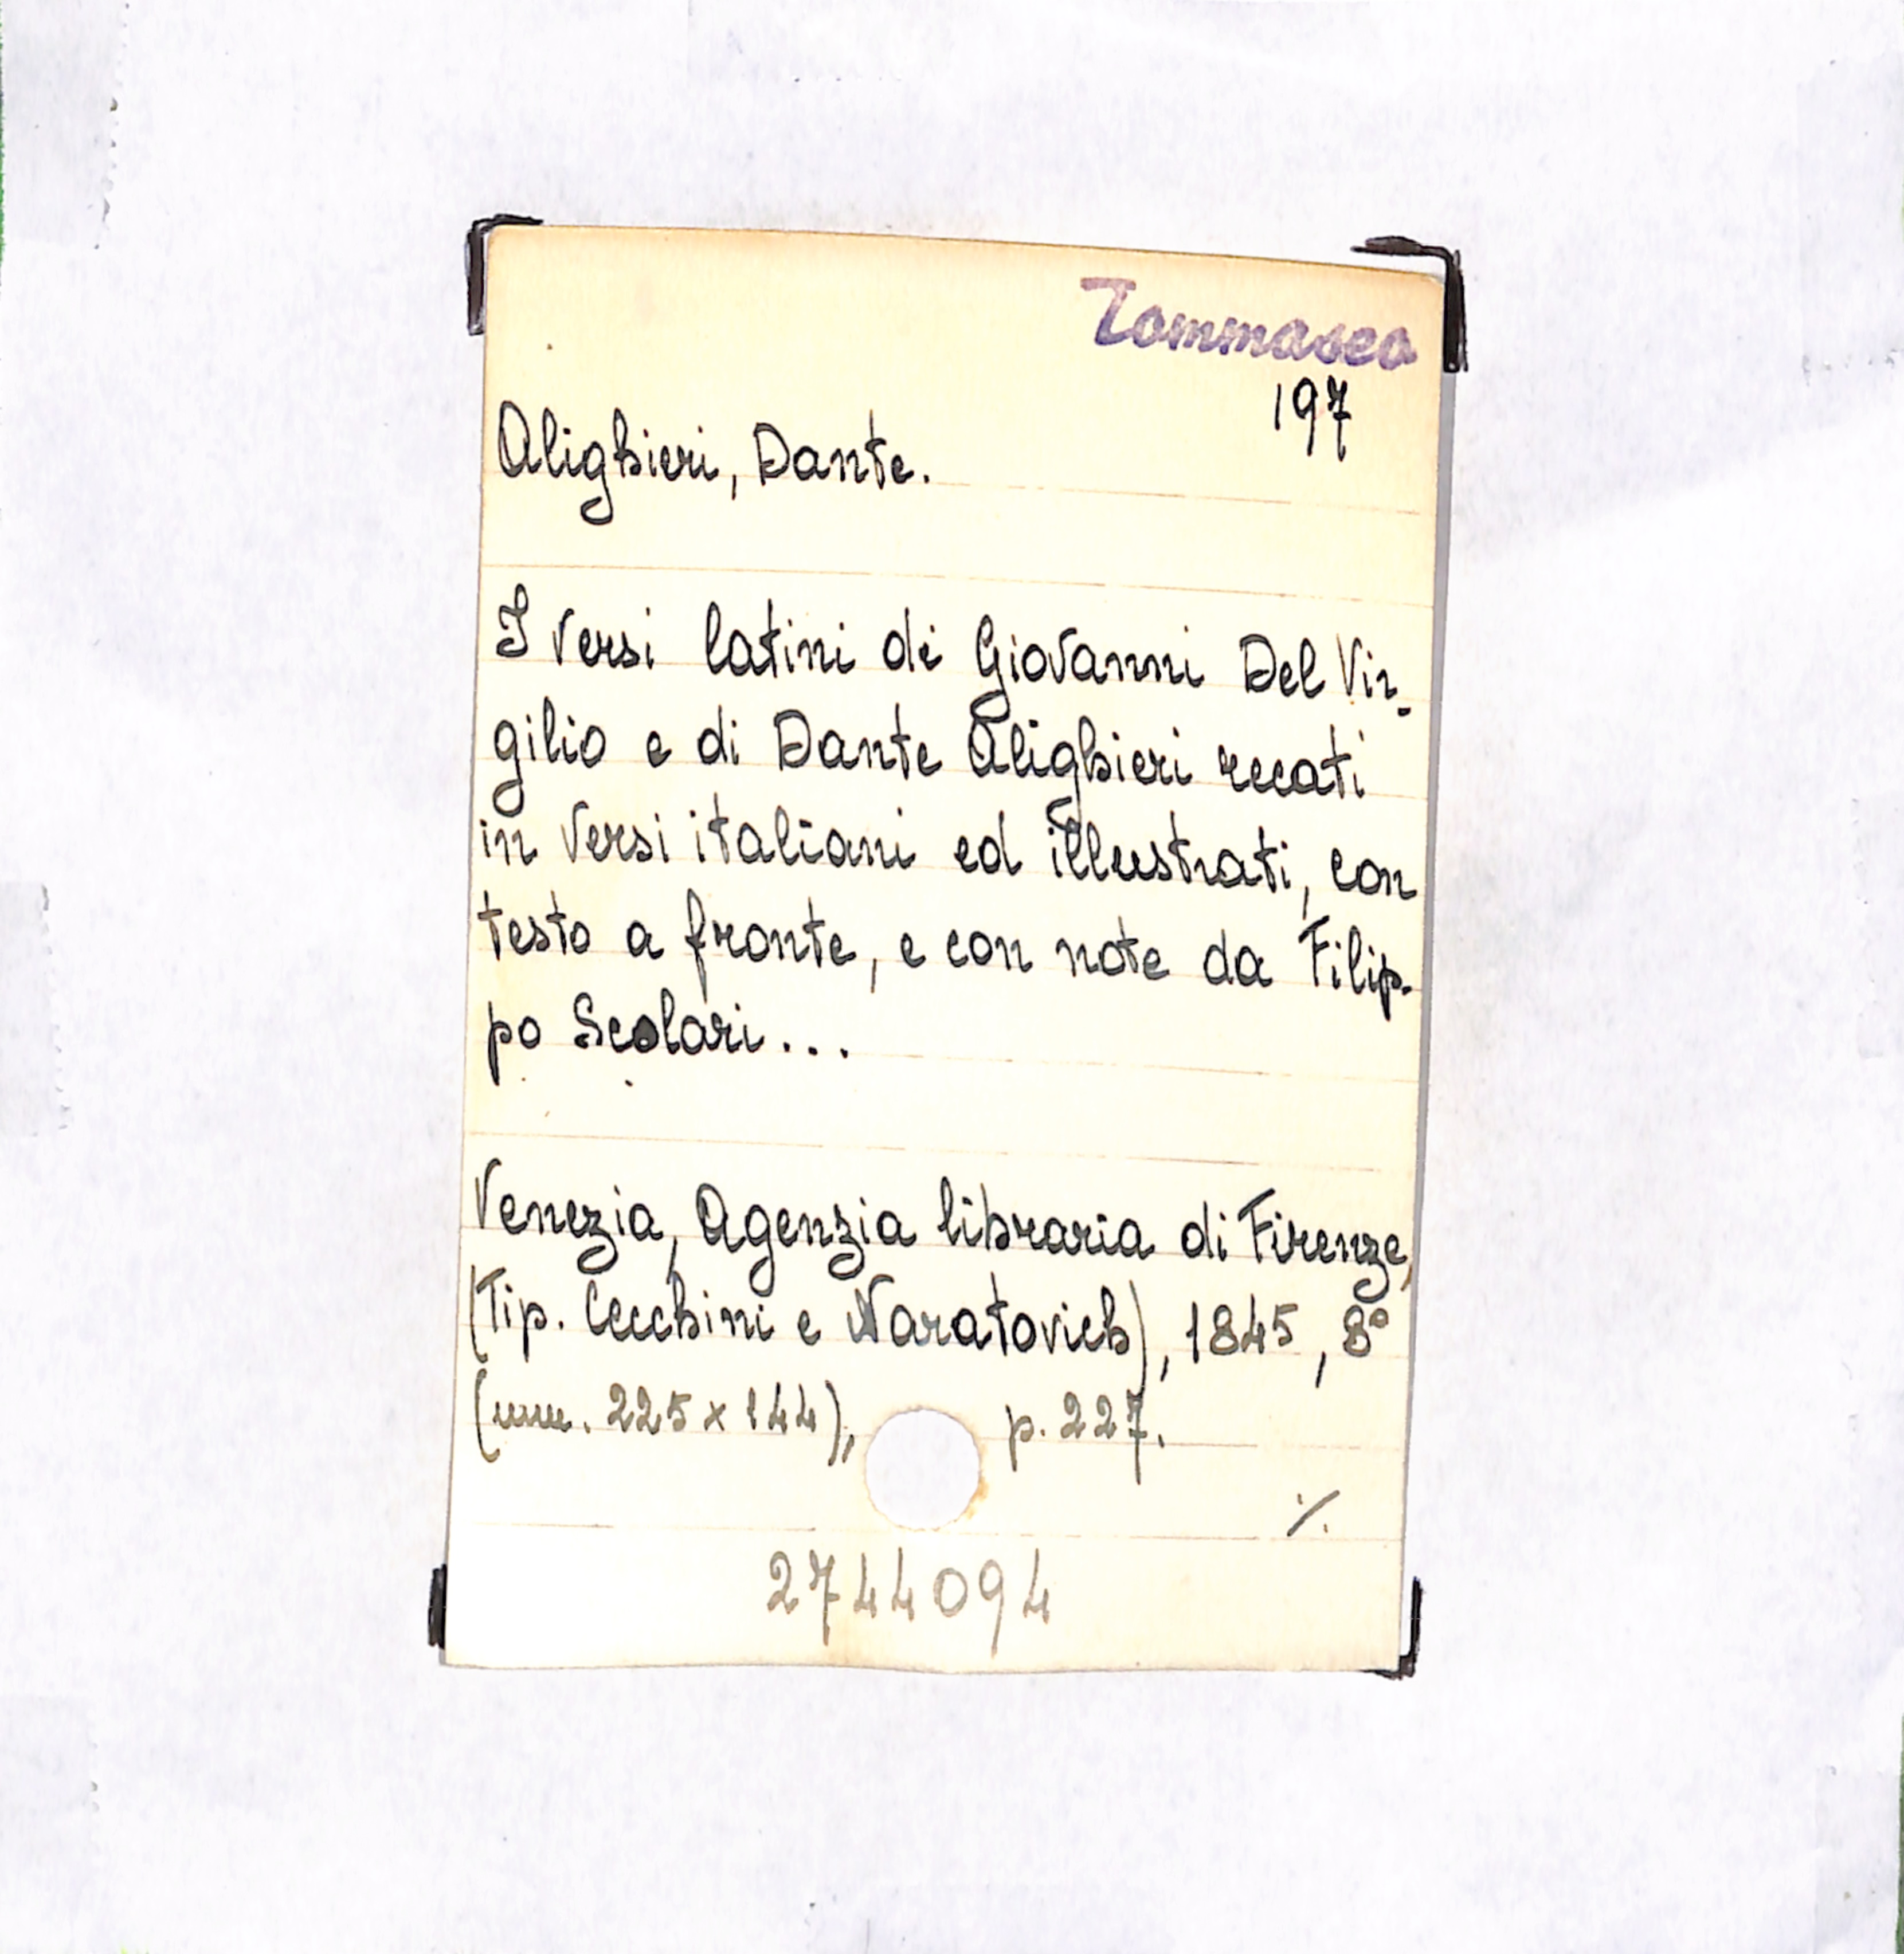 Tommaseo
197
Alighieri, Dante.
I versi latini di Giovanni Del Vir-
gilio e di Dante Alighieri recati
in versi italiani ed illustrati, con
testo a fronte, e con note da Filip-
po Scolari...
Venezia, Agenzia libraria di Firenze,
(Tip. Cecchini e Naratovich), 1845, 8°
(mm. 225 x 144), p. 227.
./.
2744094